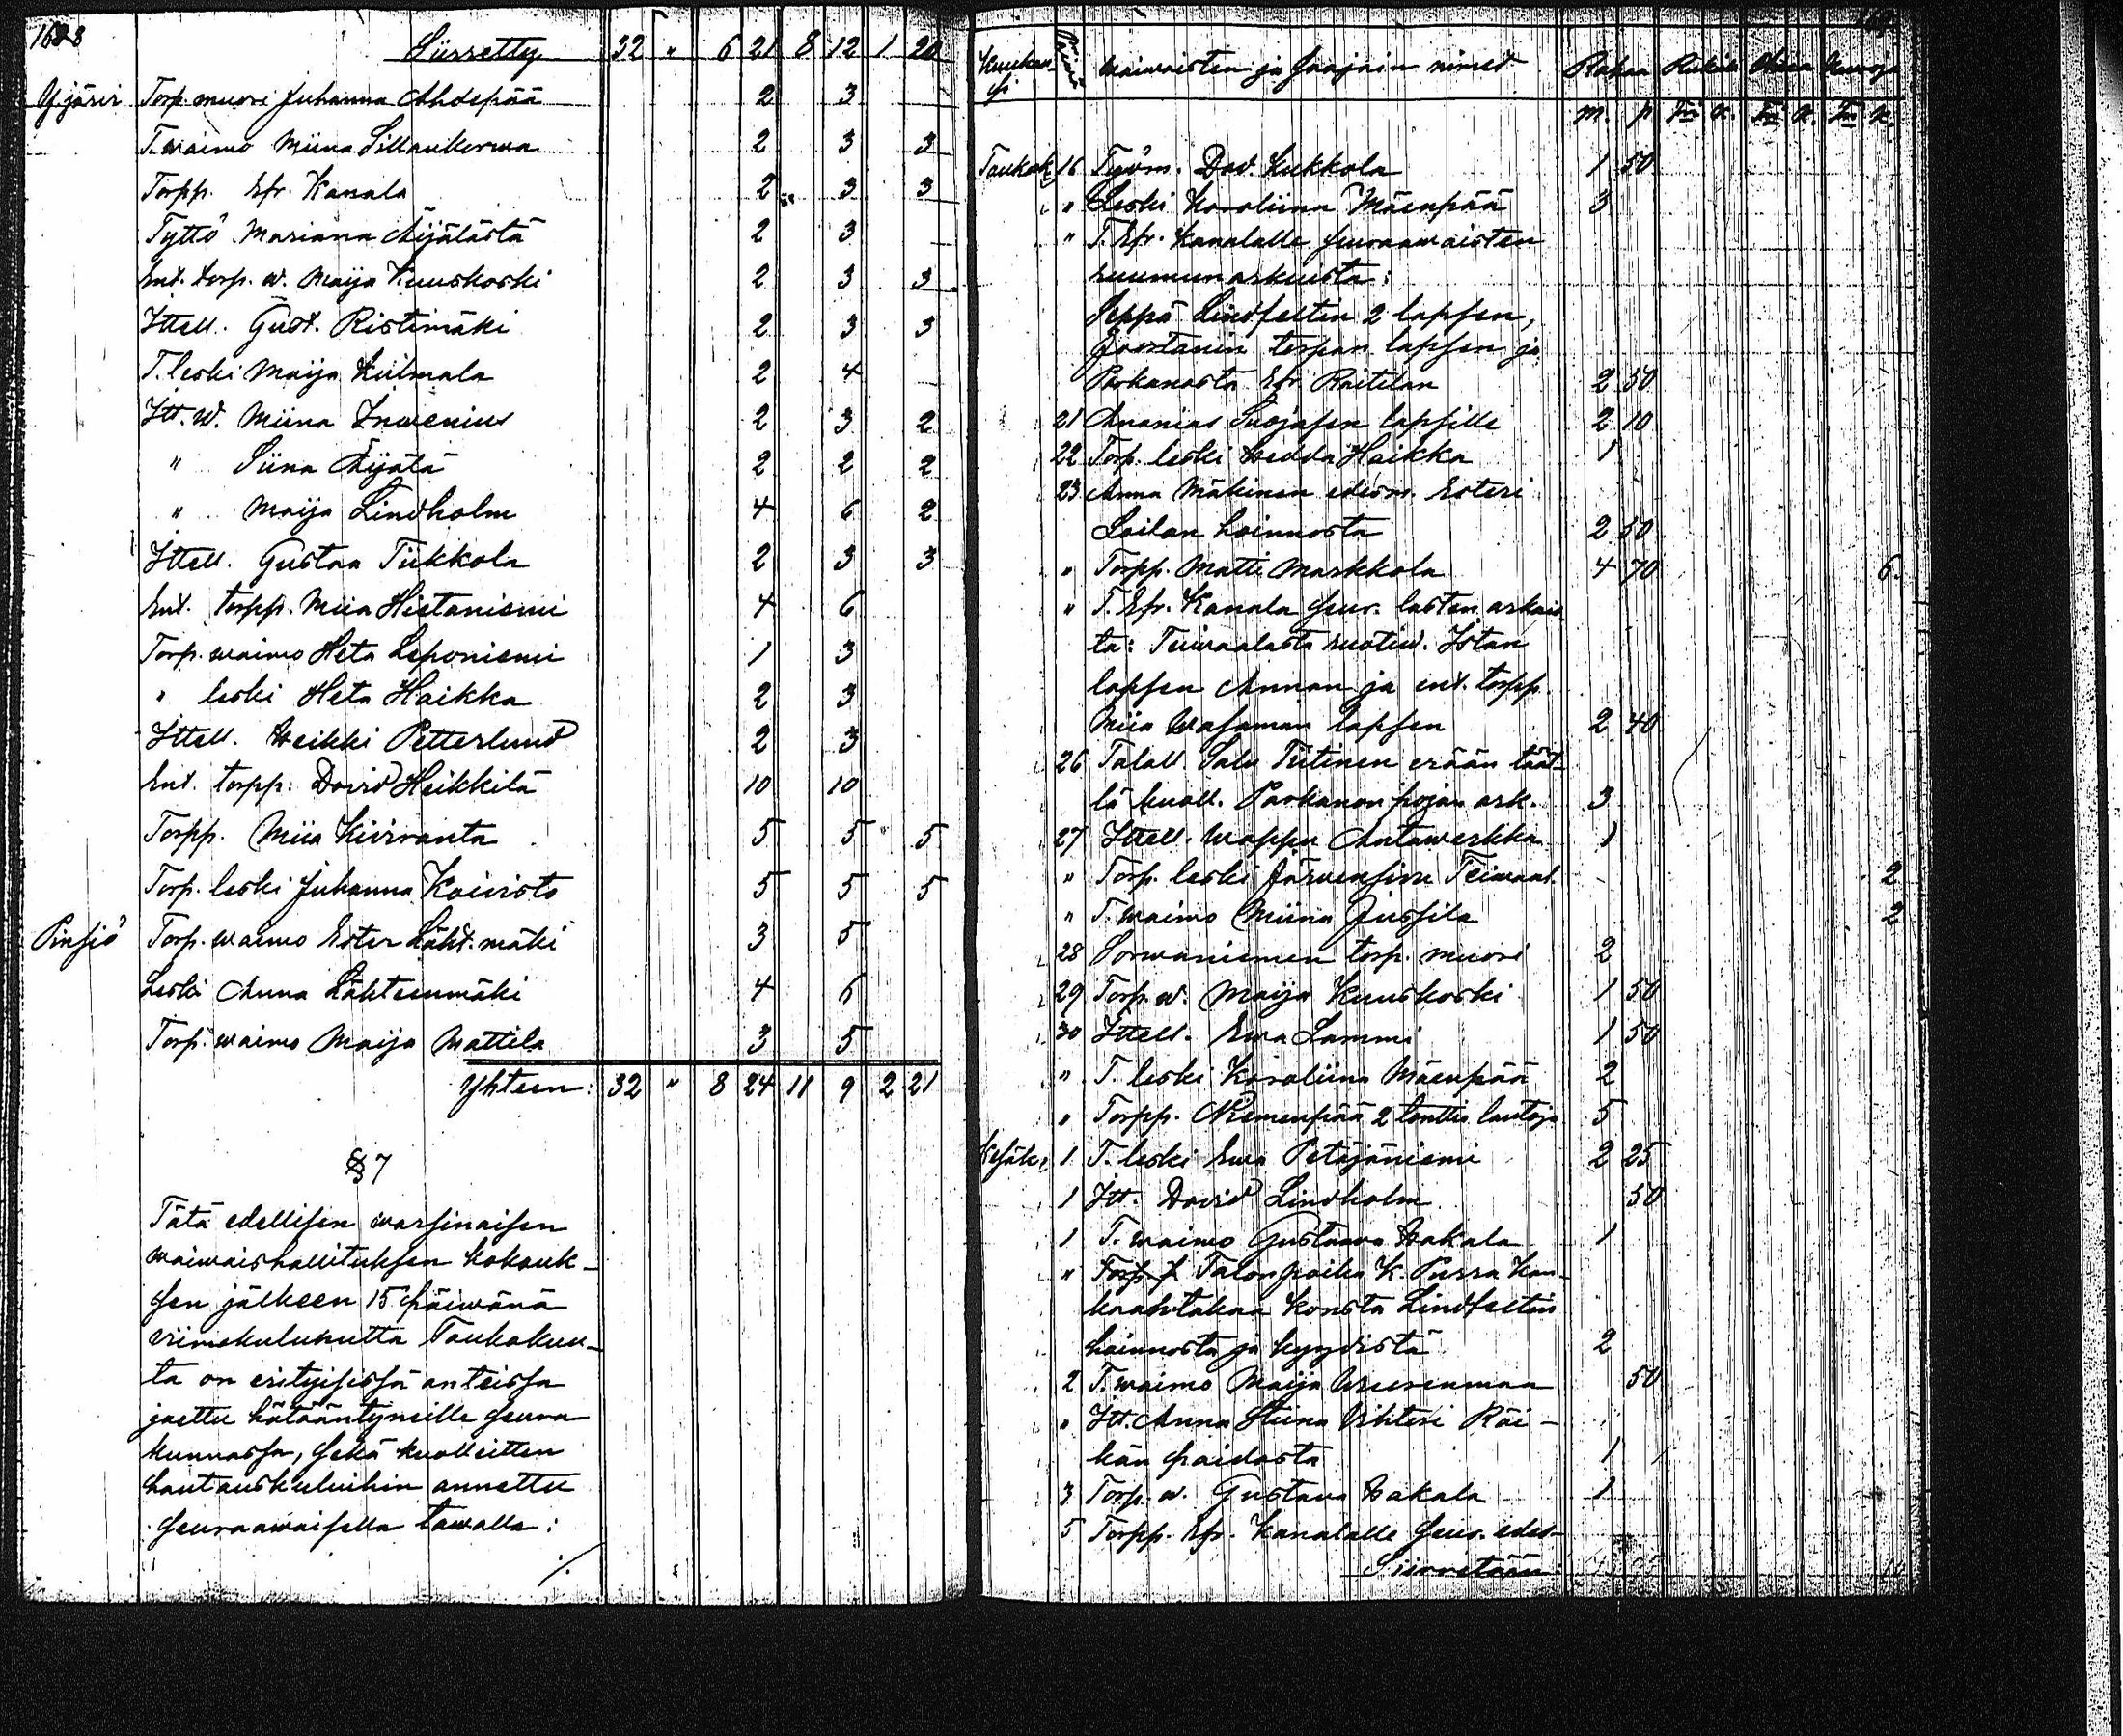 Siirretty 32 " 6 21 8 12 1 20
Y.järvi Torp. muori Juhanna Ahdepää 2 3
T. waimo Miina Sillankorwa 2 3 3
Torpp. Efr. Kanala 2 3 3
Tyttö Mariana Äijälästä 2 3
Ent. torp. w. Maija Kuuskoski 2 3 3
Ittell. Gust. Ristimäki 2 3 3
T. leski Maija Kulmala 2 4
Itt. W. Miina Inwenius 2 3 2
" Siina Äijälä 2 2 2
" Maija Lindholm 4 6 2
Ittell. Gustaa Tiikkola 2 3 3
Ent. torpp. Miia Hietaniemi 4 6
Torp. waimo Heta Leponiemi 1 3
" leski Heta Haikka 2 3
Ittell. Heikki Petterlund 2 3
Ent. torpp. David Heikkilä 10 10
Torpp. Miia Kiviranta 5 5 5
Torp. leski Juhanna Koivisto 5 5 5
Pinsiö Torp. waimo Ester Läht.mäki 3 5
Leski Anna Lähteenmäki 4 6
Torp. waimo Maija Mattila 3 5
Yhteen: 32 " 8 24 11 9 2 21
§ 7
Tätä edellisen warsinaisen
waiwaishallituksen kokouk-
sen jälkeen 15 päiwänä
viimekulunutta Toukokuu-
ta on erityisissä anteissa
jaettu hätääntyneille seura
kunnassa, sekä kuolleitten
hautauskuluihin annettu
seuraawaisella tawalla:
./.
Kuukau-
si Päivä Waiwaisten ja saajain nimed Rahaa Rukiita Ohria Kauroja
m. p. Tm k. Tm k. Tm k.
Toukok. 16 Työm. Dav. Kukkola 1 50
" Leski Karoliina Mäenpää 3
" T. Efr. Kanalalle seuraawaisten
ruumunarkuista:
Seppä Lindfeltin 2 lapsen,
Joostanin torpan lapsen ja
Parkanosta Efr. Raitilan 2 50
21 Ananias Suojasen lapsille 2 10
22 Torp. leski Hedda Haikka 1
23 Anna Mäkinen edesm. Esteri
Loilan hoinnosta 2 50
" Torpp. Matti Markkola 4 70 6.
" T. Efr. Kanala seur. lasten arkuis
ta: Teiwaalasta ruotiw. Istan
lapsen Annan ja ent. torpp.
Miia Wasaman lapsen 2 40
26 Talall. Salu Tiitinen erään tääl-
lä kuoll. Parkanon pojan ark. 3
27 Ittell. Wappu Antawerkka 1
" Torp. leski Järvensivu Teiwaal. 2
" T. waimo Miina Jussila 2
28 Sorwaniemen torp. muori 2
29 Torp. w. Maija Kuuskoski 1 50
30 Ittell. Ewa Lammi 1 50
" T. leski Karoliina Mäenpää 2
" Torpp. Niemenpää 2 tolttia lautoja 5
Kesäk. 1 T. leski Ewa Petäjäniemi 2 25
1 Itt. David Lindholm 50
1 T. waimo Gustaava Hakala 1
" Talonpoika K. Pussa Kan-
kaantakaa Konsta Lindfeltin
hoinnosta ja kyydistä 2
2 T. waimo Maija Uusenmaa 50
" Itt. Anna Stiina Vihteri Räi-
kän paidasta 1
3 Torp. w. Gustava Hakala 1
5 Torpp. Efr. Kanalalle seur. edes-
Siirretään: